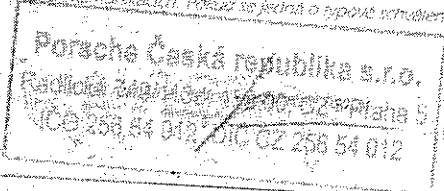 Pokud se jedná o typové schválení
Porsche Česká republika s.r.o.
Radlická Praha 5
IČO 256 54 012 DIČ CZ 256 54 012